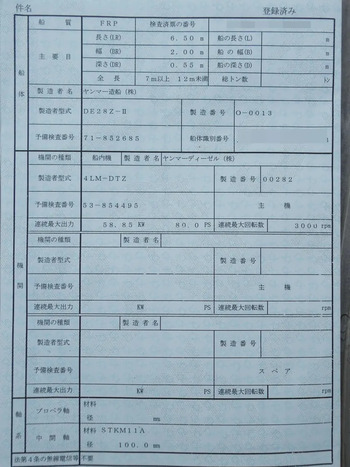 件名 登録済み
船体 船質 FRP 検査済票の番号
主要目 長さ(LR) 6.50 m 船の長さ(L) m
幅(BR) 2.00 m 船の幅(B) m
深さ(DR) 0.55 m 船の深さ(D) m
全長 7m以上 12m未満 総トン数 トン
製造者名 ヤンマー造船(株)
製造者型式 DE28Z-Ⅱ 製造番号 O-0013
予備検査番号 71-852685 船体識別番号
機関 機関の種類 船内機 製造者名 ヤンマーディーゼル(株)
製造者型式 4LM-DTZ 製造番号 00282
予備検査番号 53-854495 主機
連続最大出力 58.85 KW 80.0 PS 連続最大回転数 3000 rpm
機関の種類 製造者名
製造者型式 製造番号
予備検査番号 主機
連続最大出力 KW PS 連続最大回転数 rpm
機関の種類 製造者名
製造者型式 製造番号
予備検査番号 スペア
連続最大出力 KW PS 連続最大回転数 rpm
軸系 プロペラ軸 材料
径 mm
中間軸 材料 STKM11A
径 100.0 mm
法第4条の無線電信等 不要